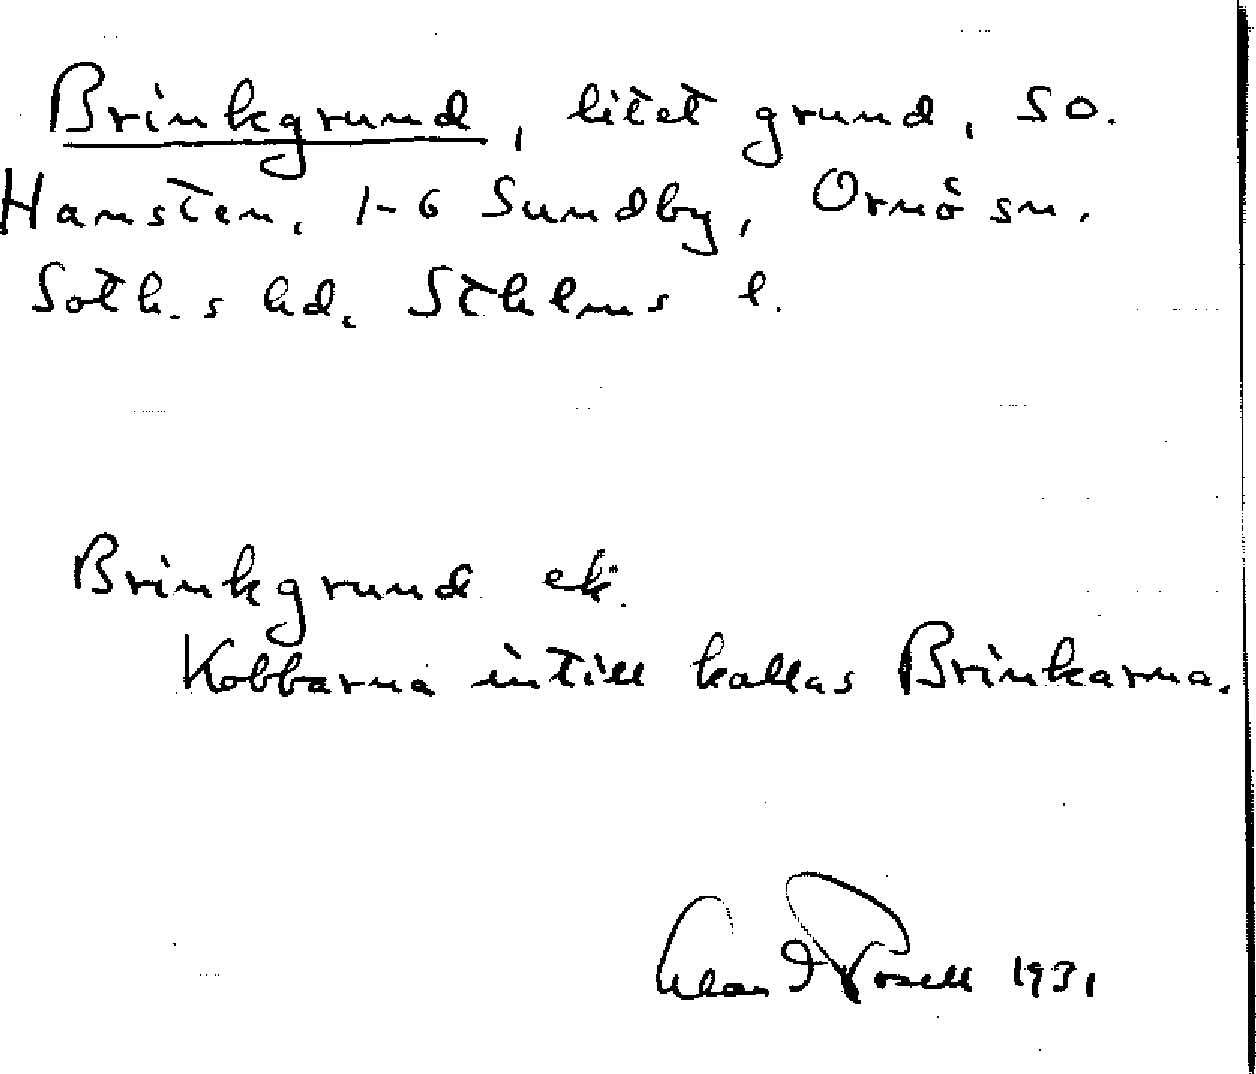 Brinkgrund, litet grund, SO.
Hamsten, 1-6 Sundby, Ornö sn.
Soth.s hd. Sthlms l.
Brinkgrund ek.
Kobbarna intill kallas Brinkarna.
1931